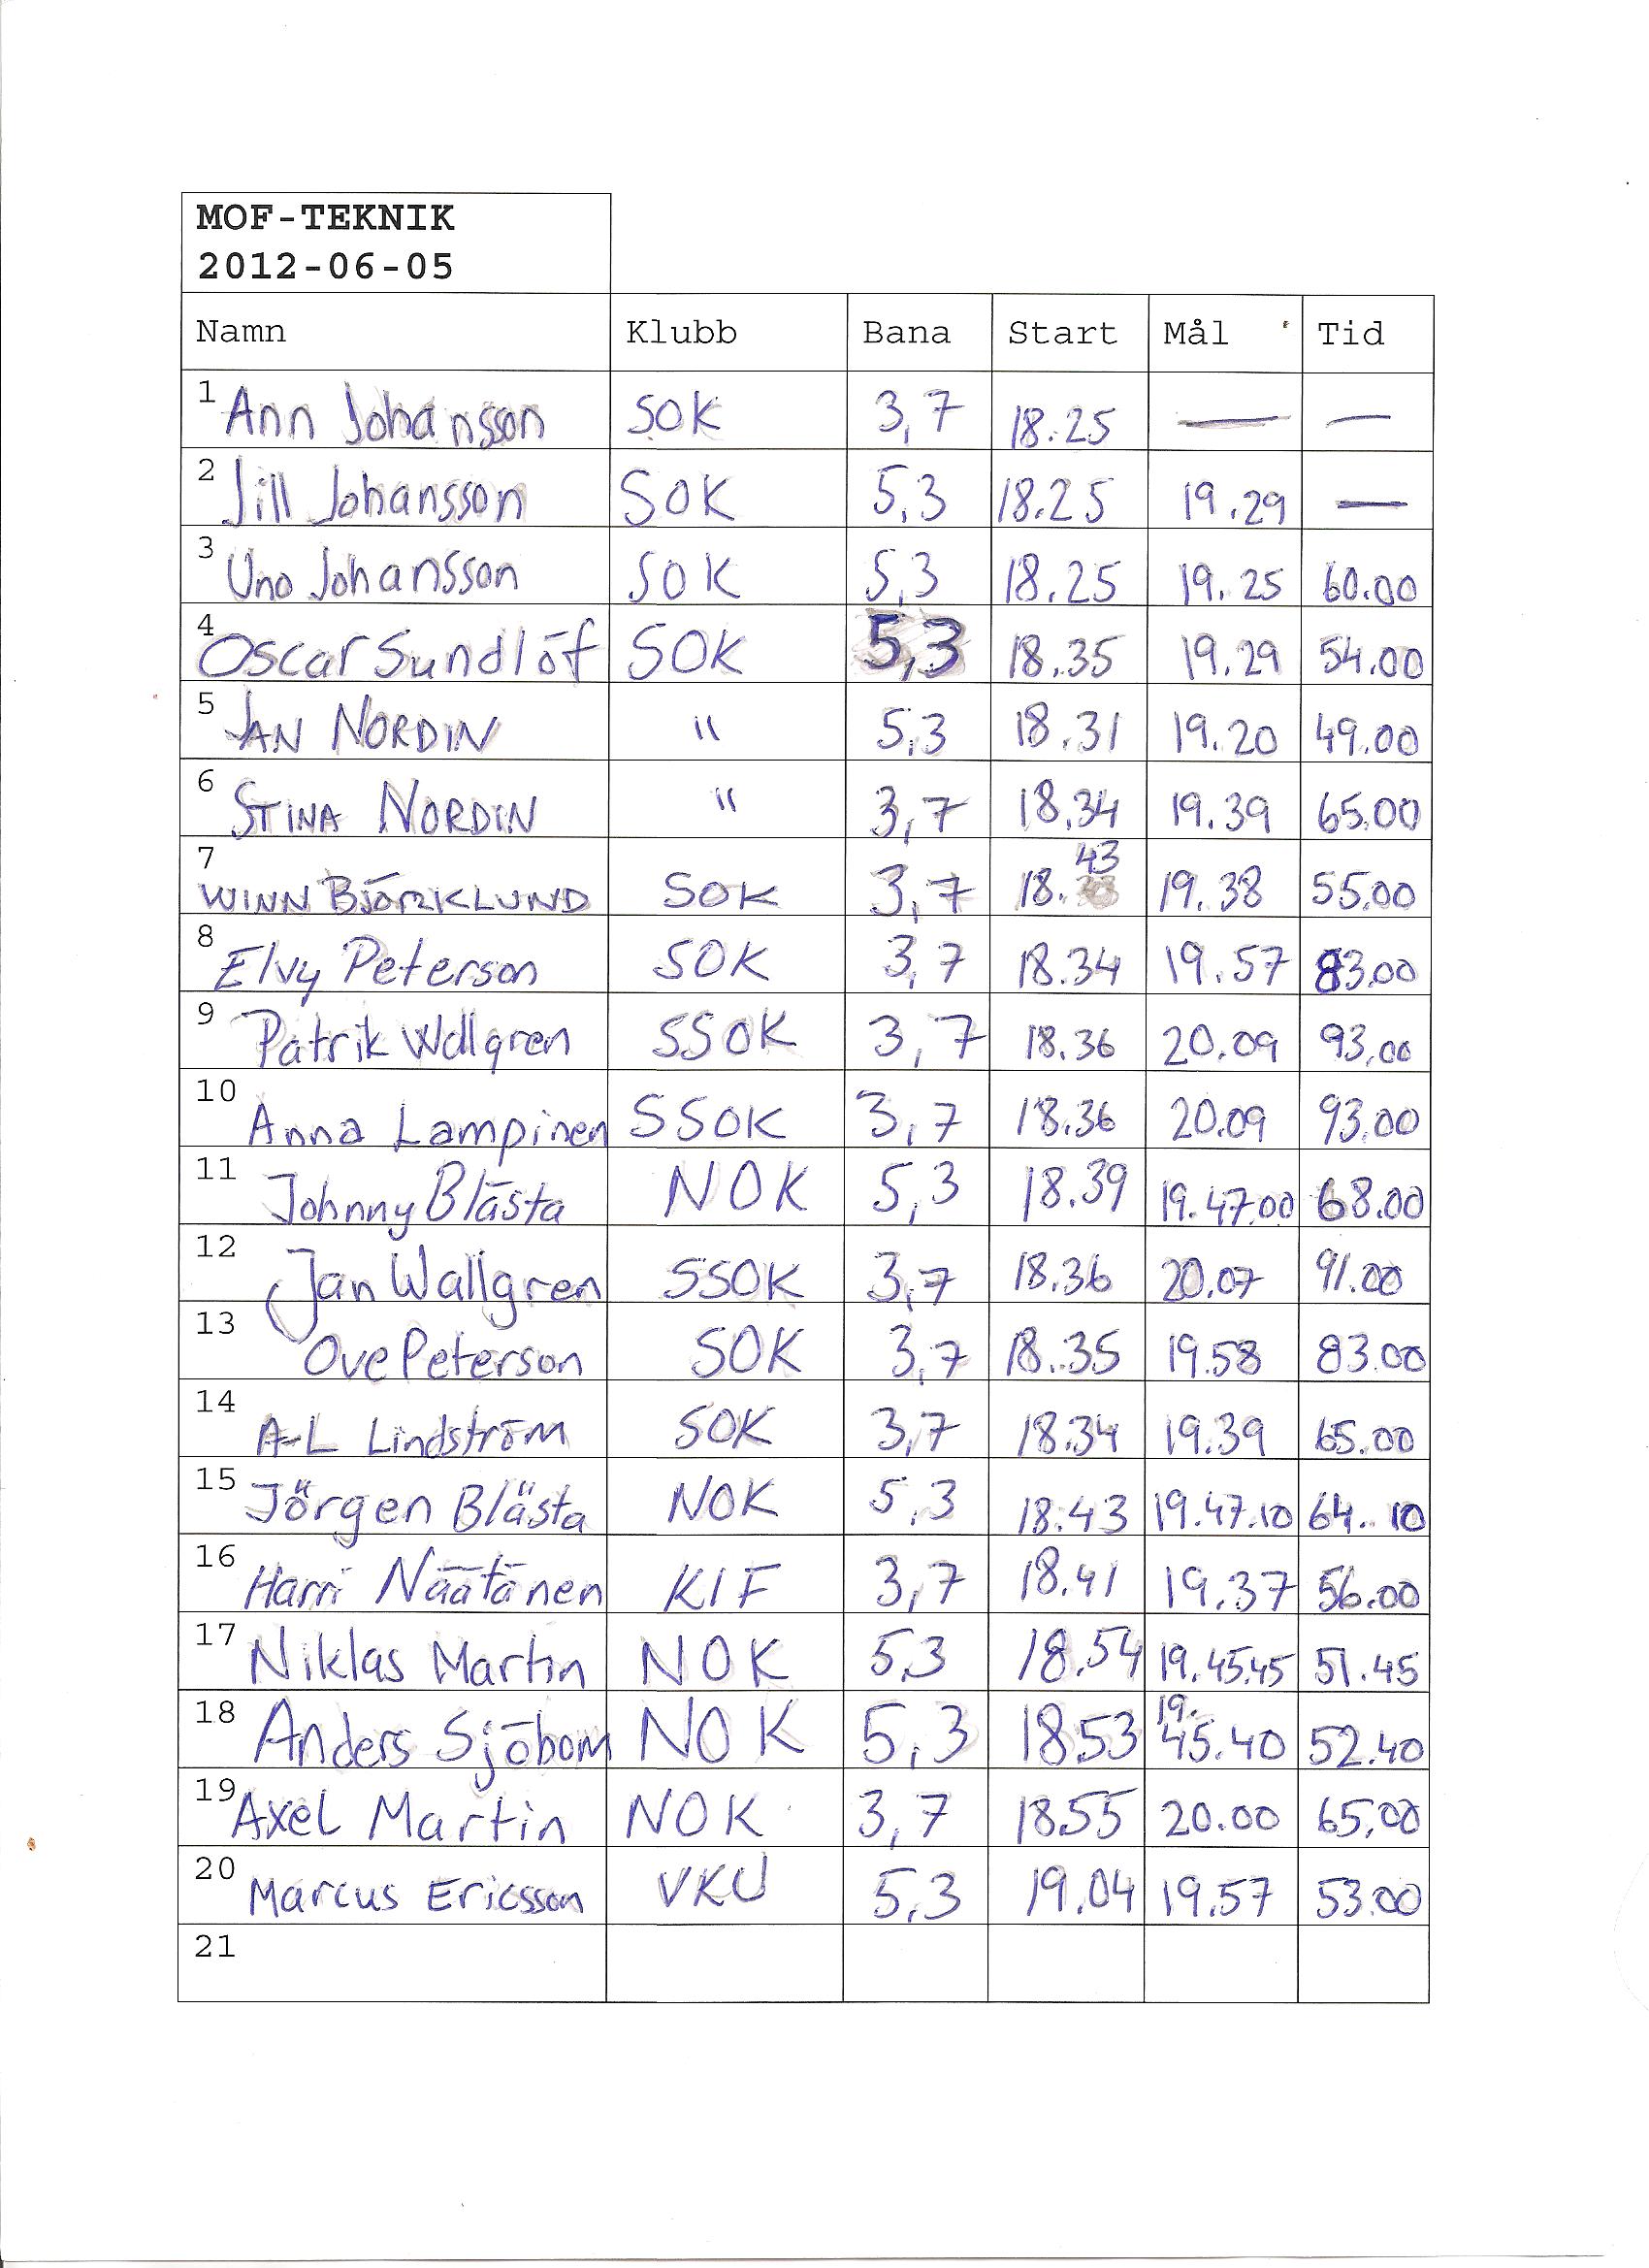 MOF-TEKNIK
2012-06-05
Namn Klubb Bana Start Mål Tid
1 Ann Johansson SOK 3,7 18.25 — —
2 Jill Johansson SOK 5,3 18.25 19.29 —
3 Uno Johansson SOK 5,3 18.25 19.25 60.00
4 Oscar Sundlöf SOK 5,3 18.35 19.29 54.00
5 JAN NORDIN " 5,3 18.31 19.20 49.00
6 STINA NORDIN " 3,7 18.34 19.39 65.00
7 WINN BJÖRKLUND SOK 3,7 18.43 19.38 55.00
8 Elvy Peterson SOK 3,7 18.34 19.57 83.00
9 Patrik Wallgren SSOK 3,7 18.36 20.09 93.00
10 Anna Lampinen SSOK 3,7 18.36 20.09 93.00
11 Johnny Blästa NOK 5,3 18.39 19.47.00 68.00
12 Jan Wallgren SSOK 3,7 18.36 20.07 91.00
13 Ove Peterson SOK 3,7 18.35 19.58 83.00
14 A-L Lindström SOK 3,7 18.34 19.39 65.00
15 Jörgen Blästa NOK 5,3 18.43 19.47.10 64.10
16 Harri Näätänen KIF 3,7 18.41 19.37 56.00
17 Niklas Martin NOK 5,3 18.54 19.45.45 51.45
18 Anders Sjöbom NOK 5,3 18.53 19.45.40 52.40
19 Axel Martin NOK 3,7 18.55 20.00 65.00
20 Marcus Ericsson VKU 5,3 19.04 19.57 53.00
21